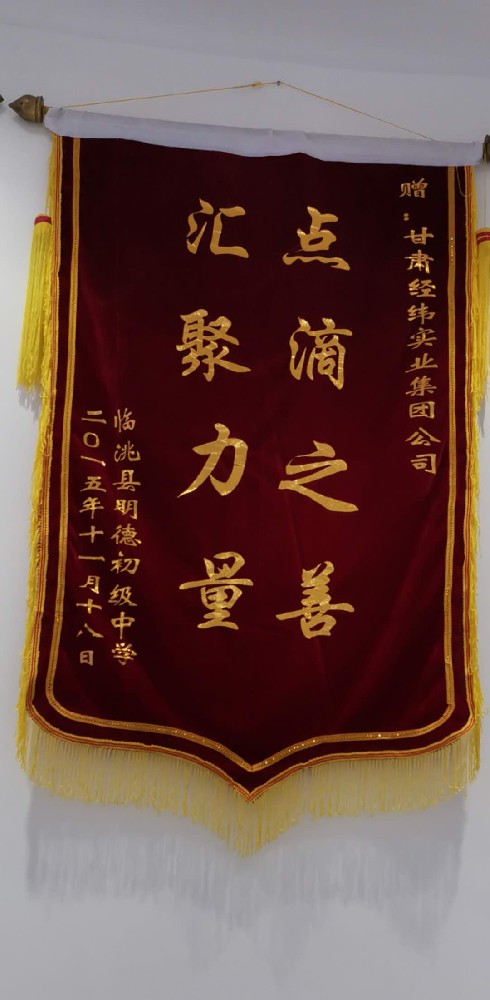 赠：甘肃经纬实业集团公司
点滴之善
汇聚力量
临洮县明德初级中学
二〇一五年十一月十八日